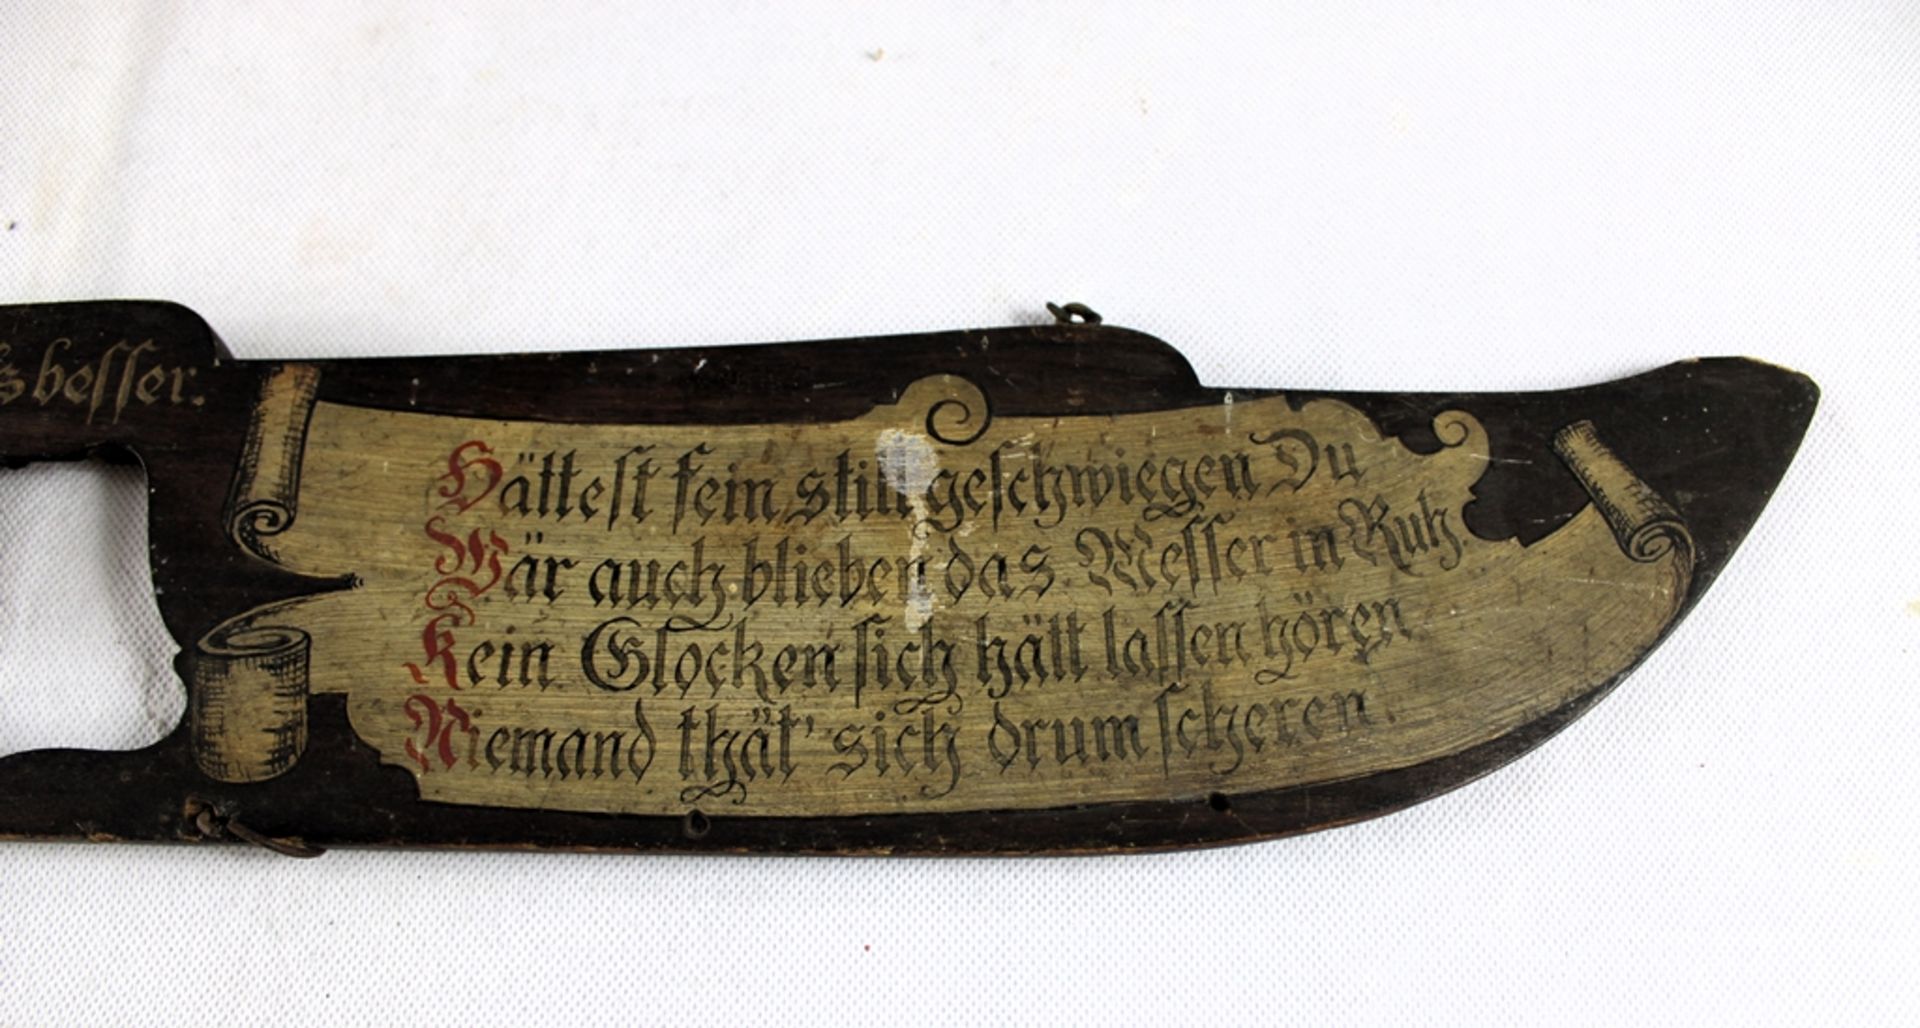 besser.
Hättest fein still geschwiegen Du
Wär auch blieben das Messer in Ruh.
Kein Glocken sich hätt lassen hören
Niemand thät' sich drum scheren.